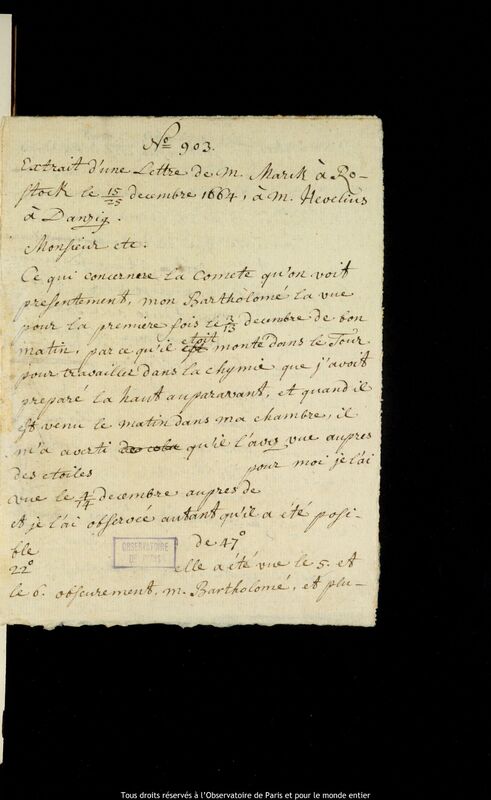 No 903.
Extrait d'une Lettre de M. Marck à Ro-
stock le 15/25 decembre 1664, à M. Hevelius
à Danzig.
Monsieur etc.
Ce qui concernere la Comete qu'on voit
presentement, mon Bartholomé la vue
pour la premiere fois le 3/13 decembre de bon
matin, par ce qu'il est etoit monté dans le Tour
pour travailler dans la chymie que j'avoit
preparé la haut auparavant, et quand il
est venu le matin dans ma chambre, il
m'a averti de cela qu'il l'avoy vue aupres
des etoiles pour moi je l'ai
vue le 4/14 decembre aupres de
et je l'ai observée autant qu'il a été possi-
ble de 47°
22° elle a été vue le 5. et
le 6. obscurement, m. Bartholomé, et plu-
OBSERVATOIRE
DE PARIS
Tous droits réservés à l'Observatoire de Paris et pour le monde entier